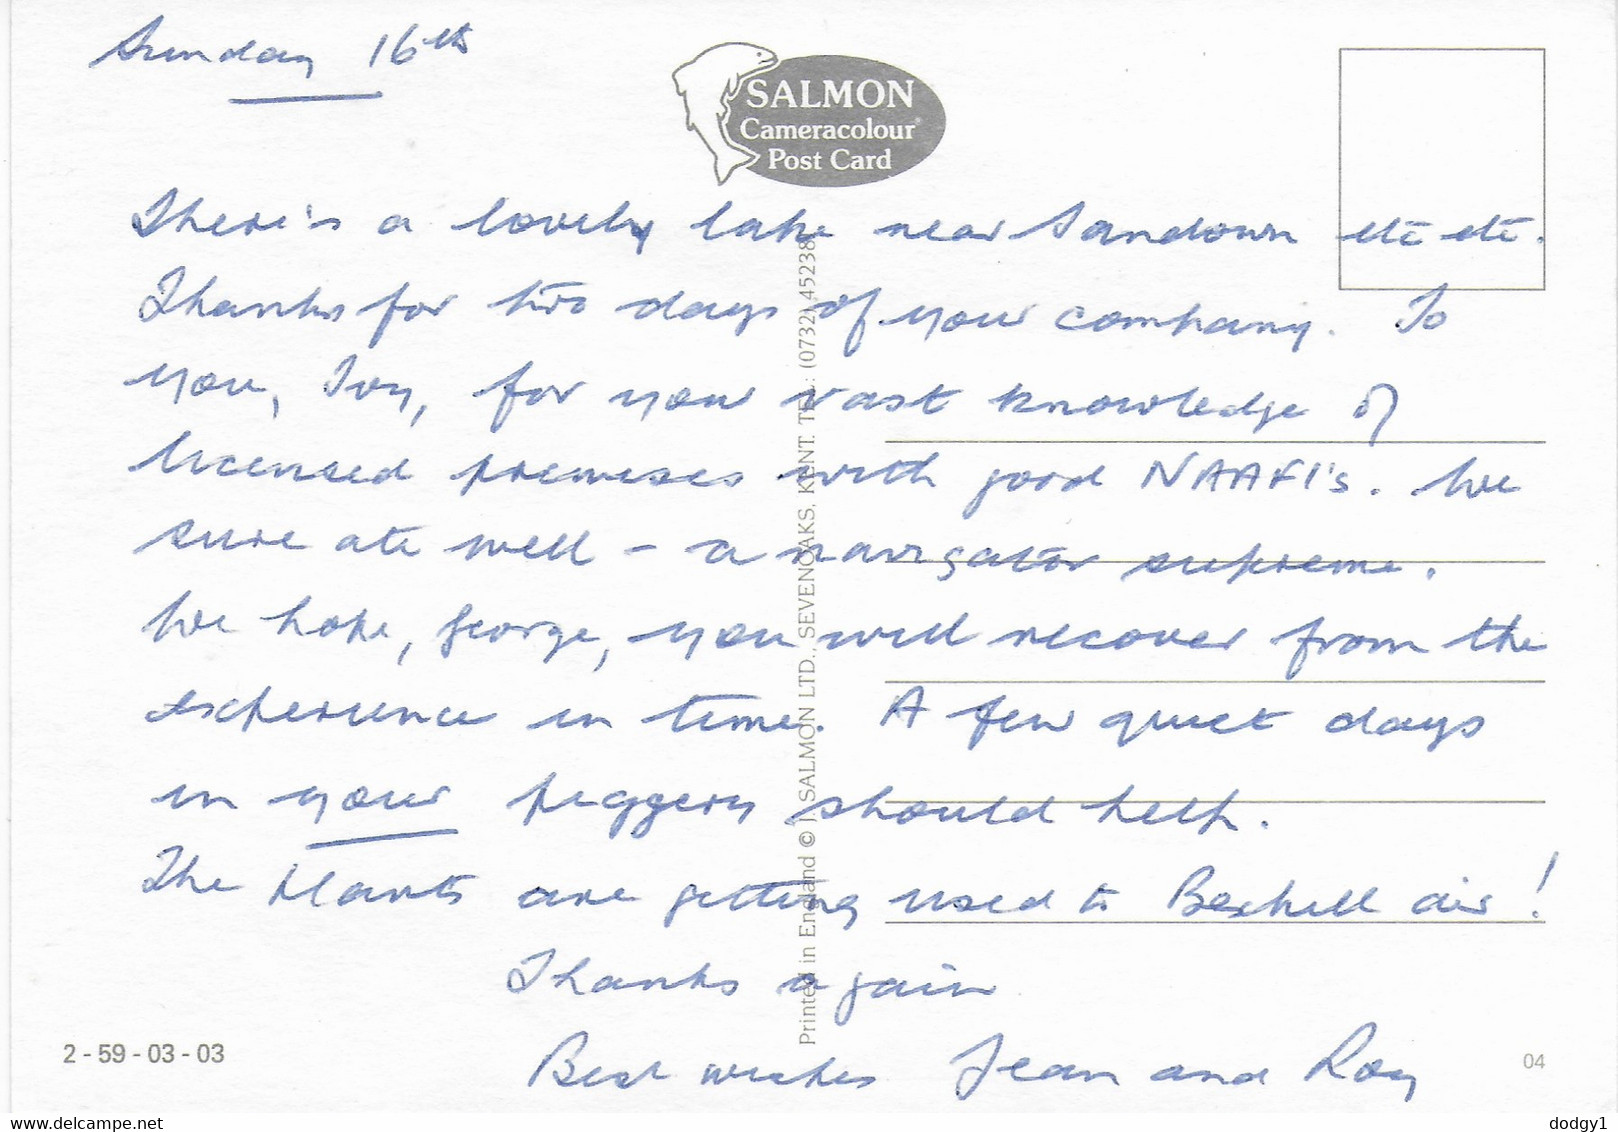 Sunday 16th
SALMON
Cameracolour
Post Card
There's a lovely lake near Sandown etc etc.
Thanks for two days of your company. To
you, Ivy, for your vast knowledge of
licensed premises with good NAAFI's. We
sure ate well - a navigator supreme.
We hope, George, you will recover from the
experience in time. A few quiet days
in your piggery should help.
The plants are getting used to Bexhill air!
Thanks again
Best wishes Jean and Roy
Printed in England © J. SALMON LTD., SEVENOAKS, KENT. TEL: (0732) 45238
2 - 59 - 03 - 03
04
www.delcampe.net
dodgy1